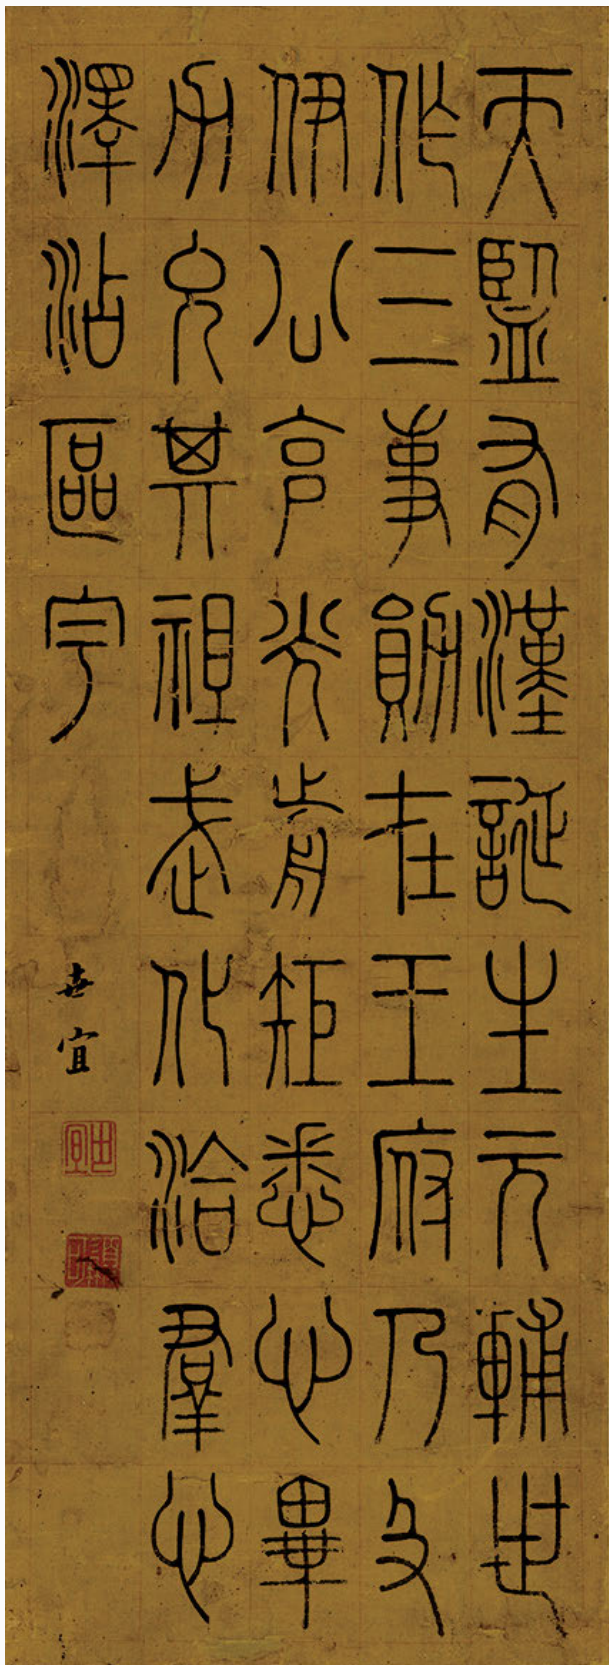 天監有漢誕生元輔世
作三事勛在王府乃及
伊公克光前矩悉心畢
力允其祖武化洽羣心
澤沾區宇
世宜
世宜